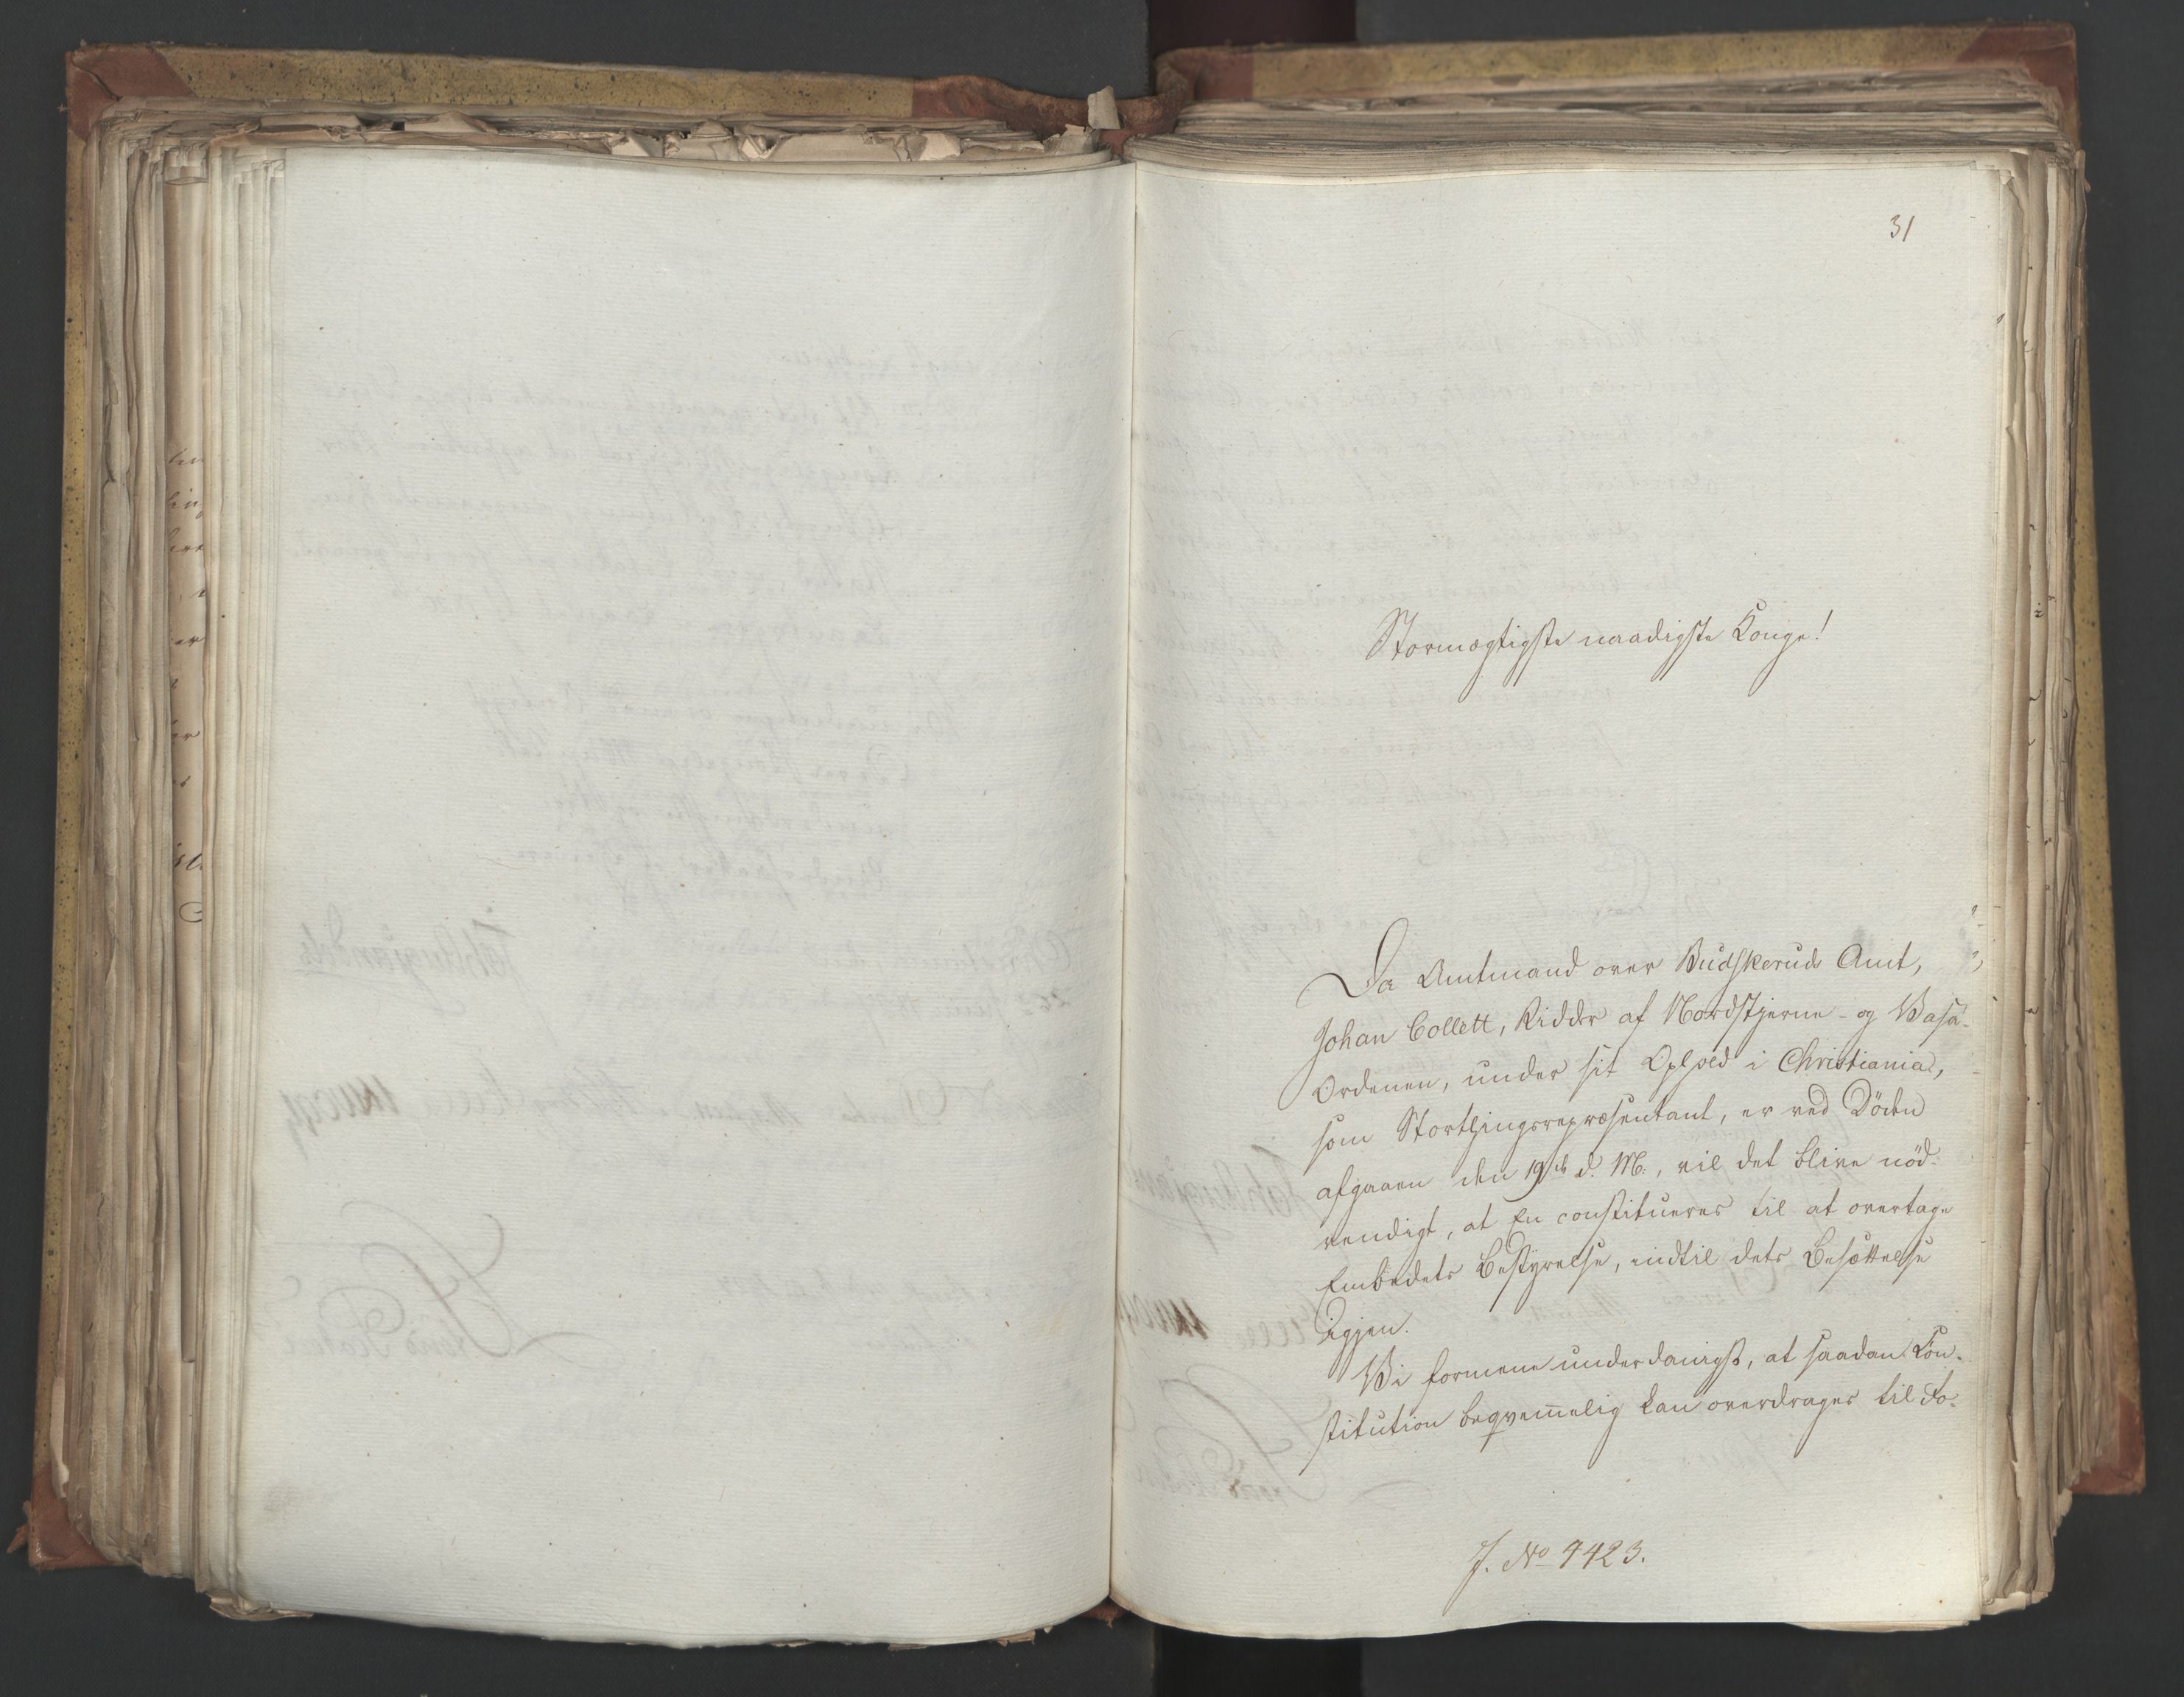 31
Stormægtigste naadigste Konge!
Da Amtmand over Budskeruds Amt,
Johan Collett, Ridder af Nordstjerne- og Vasa-
Ordenen, under sit Ophold i Christiania,
som Storthingsrepræsentant, er ved Döden
afgaaen den 19de d. M., vil det blive nöd-
vendigt, at En constitueres til at overtage
Embedets Bestyrelse, indtil dets Besættelse
igjen.
Vi formene underdanigst, at saadan Con-
stitution beqvemmelig kan overdrages til Fo-
J. No 4423.